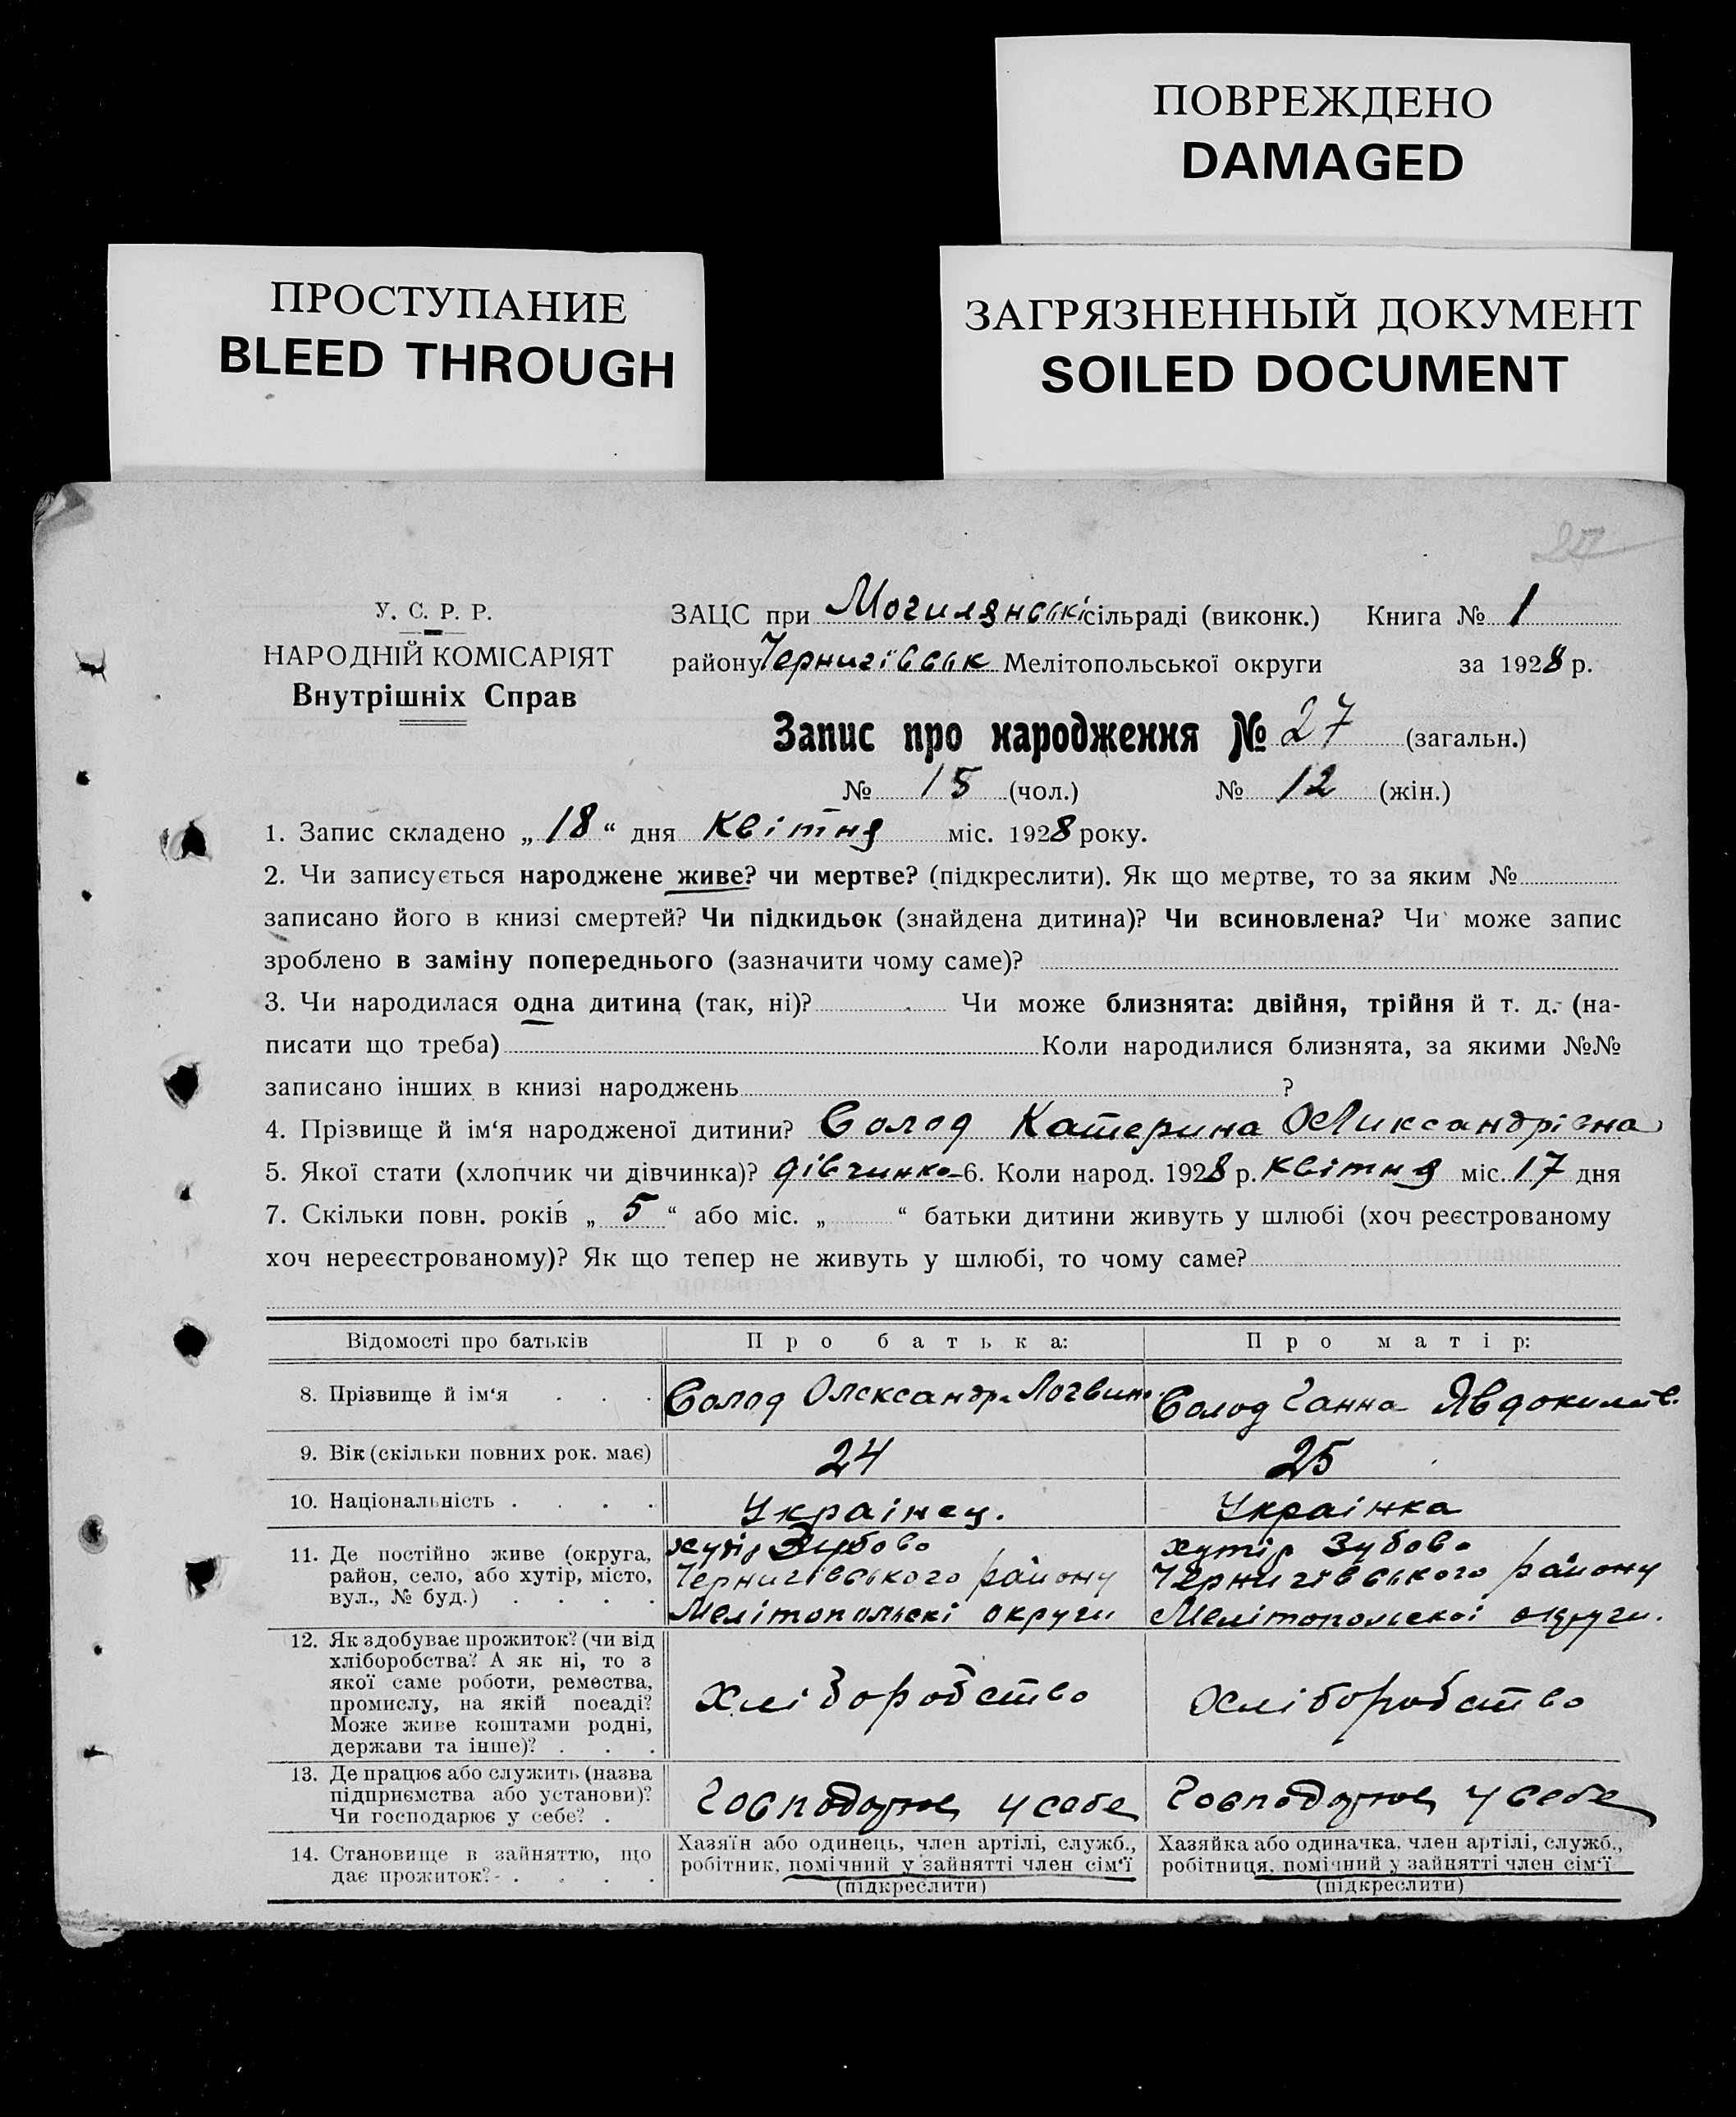 ПОВРЕЖДЕНО
DAMAGED
ПРОСТУПАНИЕ
BLEED THROUGH
ЗАГРЯЗНЕННЫЙ ДОКУМЕНТ
SOILED DOCUMENT
27
У. С. Р. Р.
НАРОДНІЙ КОМІСАРІЯТ
Внутрішніх Справ
ЗАЦС при Могилянські сільраді (виконк.) Книга № 1
району Чернигівськ Мелітопольської округи за 1928 р.
Запис про народження № 27 (загальн.)
№ 15 (чол.) № 12 (жін.)
1. Запис складено „ 18 “ дня Квітня міс. 1928 року.
2. Чи записується народжене живе? чи мертве? (підкреслити). Як що мертве, то за яким №
записано його в книзі смертей? Чи підкидьок (знайдена дитина)? Чи всиновлена? Чи може запис
зроблено в заміну попереднього (зазначити чому саме)?
3. Чи народилася одна дитина (так, ні)? Чи може близнята: двійня, трійня й т. д. (на-
писати що треба) Коли народилися близнята, за якими №№
записано інших в книзі народжень ?
4. Прізвище й ім‘я народженої дитини? Солод Катерина Оликсандрівна
5. Якої стати (хлопчик чи дівчинка)? дівчинка 6. Коли народ. 1928 р. квітня міс. 17 дня
7. Скільки повн. років „ 5 “ або міс. „ “ батьки дитини живуть у шлюбі (хоч реєстрованому
хоч нереєстрованому)? Як що тепер не живуть у шлюбі, то чому саме?
Відомості про батьків Про батька: Про матір:
8. Прізвище й ім‘я . . . Солод Олександр Логвин Солод Ганна Явдокимів.
9. Вік (скільки повних рок. має) 24 25
10. Національність . . . . Українец. Українка
11. Де постійно живе (округа,
район, село, або хутір, місто,
вул., № буд.) . . . .
хутір Зубово
Чернигівського району
Мелітопольскі округи
хутір Зубово
Чернигівського району
Мелітопольскоі округи.
12. Як здобуває прожиток? (чи від
хліборобства? А як ні, то з
якої саме роботи, ремества,
промислу, на якій посаді?
Може живе коштами родні,
держави та інше)? . . .
Хліборобство Хліборобство
13. Де працює або служить (назва
підприємства або установи)?
Чи господарює у себе? .
Господарює у себе Господарює у себе
14. Становище в зайняттю, що
дає прожиток? . . . .
Хазяїн або одинець, член артілі, служб.,
робітник, помічний у зайнятті член сім‘ї
(підкреслити)
Хазяйка або одиначка, член артілі, служб.,
робітниця, помічний у зайнятті член сім‘ї
(підкреслити)